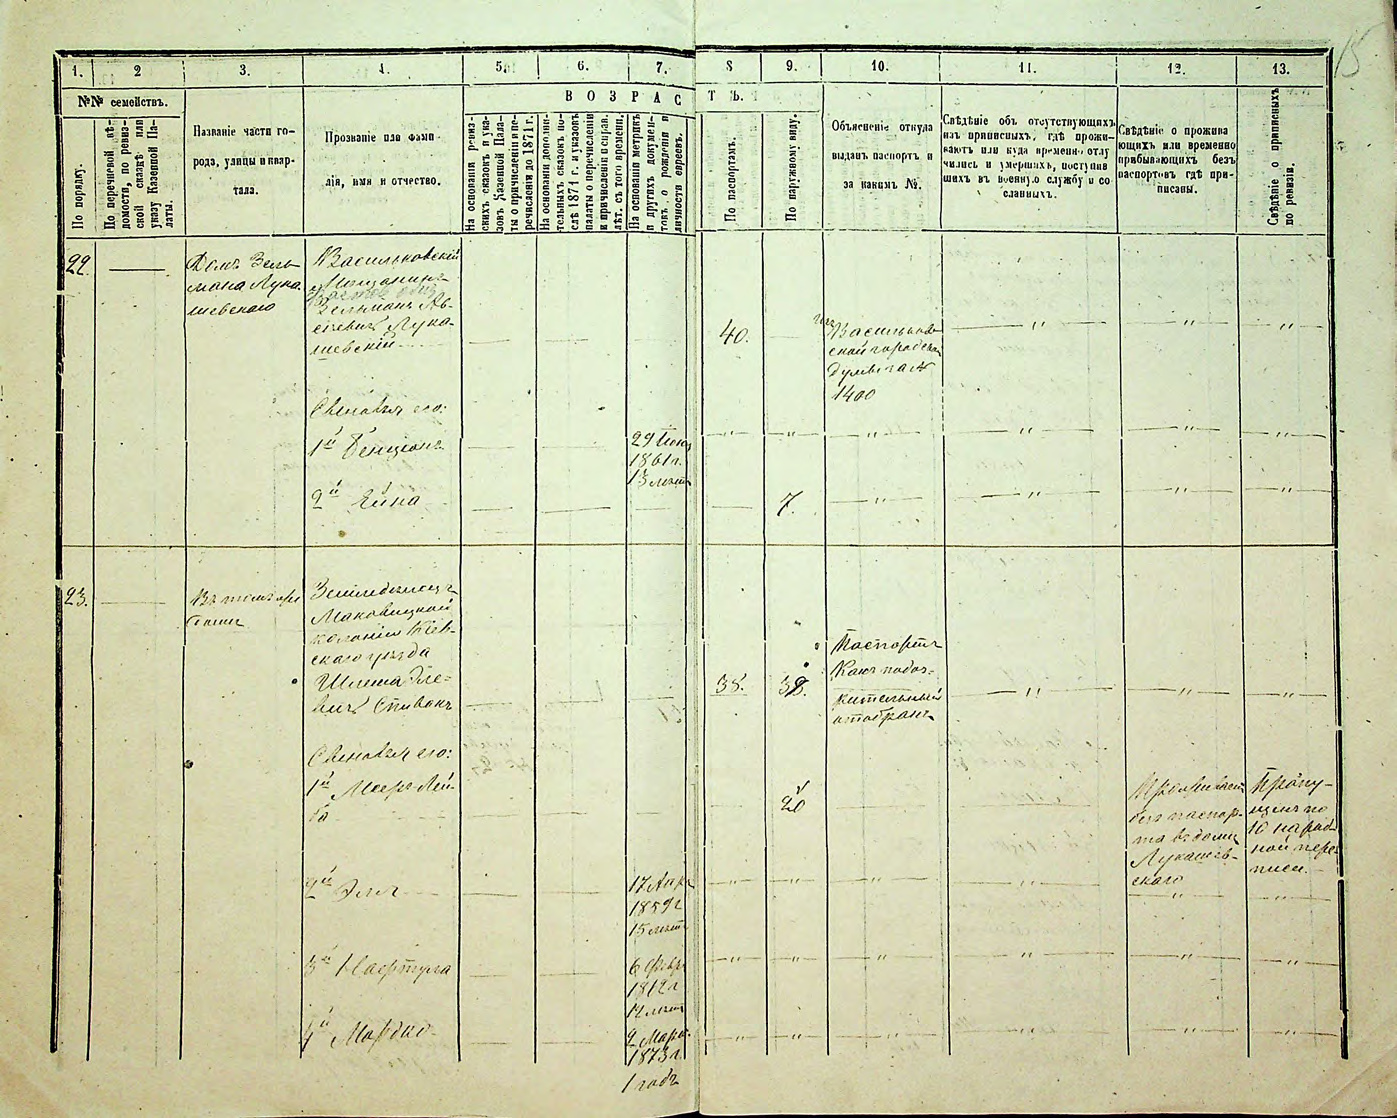 15
1. 2 3. 4. 5. 6. 7. 8 9. 10. 11. 12. 13.
№№ семействъ.
По порядку.
По перечневой вѣ-
домости, по ревиз-
ской сказкѣ или
указу Казенной Па-
латы.
Названіе части го-
рода, улицы и квар-
тала.
Прозваніе или фами-
лія, имя и отчество.
ВОЗРАСТЪ.
На основаніи ревиз-
скихъ сказокъ и ука-
зовъ Казенной Пала-
ты о причисленіи и пе-
речисленіи до 1871 г.
На основаніи дополни-
тельныхъ сказокъ по-
слѣ 1871 г. и указовъ
палаты о перечисленіи
и причисленіи и справ.
лѣт. съ того времени.
На основаніи метрик
и другихъ докумен-
товъ о рожденіи и
личности евреевъ.
По паспортамъ.
По наружному виду.
Объясненіе откуда
выданъ паспортъ и
за какимъ №.
Свѣдѣніе объ отсутствующихъ
изъ приписныхъ, гдѣ прожи-
ваютъ или куда временно отлу
чились и умершихъ, поступив
шихъ въ военную службу и со
сланныхъ.
Свѣдѣніе о прожива
ющихъ или временно
прибывающихъ безъ
паспортовъ гдѣ при-
писаны.
Свѣдѣніе о приписныхъ
по ревизіи.
22.
Домъ Зель-
мана Лука
шевскаго
Васильковскій
Мѣщанинъ
Зельманъ Ав-
Лука-
шевскій
40.
Изъ Васильков-
ской городской
Думы за №
1400
Сыновья его:
1й Бенціонъ
29 Іюня
1861 г.
13 лѣтъ
2й Ейна
7.
23.
Въ томъ же
домѣ
Земледѣлецъ
колоніи Кіев-
скаго уѣзда
Шлема
Спивакъ
38.
38.
Паспортъ
какъ подоз-
рительный
отобранъ
Сыновья его:
1й Меер-Лей-
ба
20
Проживает
безъ паспор-
та въ домѣ
Лукашев-
скаго
Пропу-
щенъ по
10 народ-
ной пере-
писи.
2й Эля
17 Апр.
1859 г
15 лѣтъ
3й Нафтула
6 Февр
1862 г
12 лѣтъ
4й Мордко
2 Марта
1873 г.
1 годъ